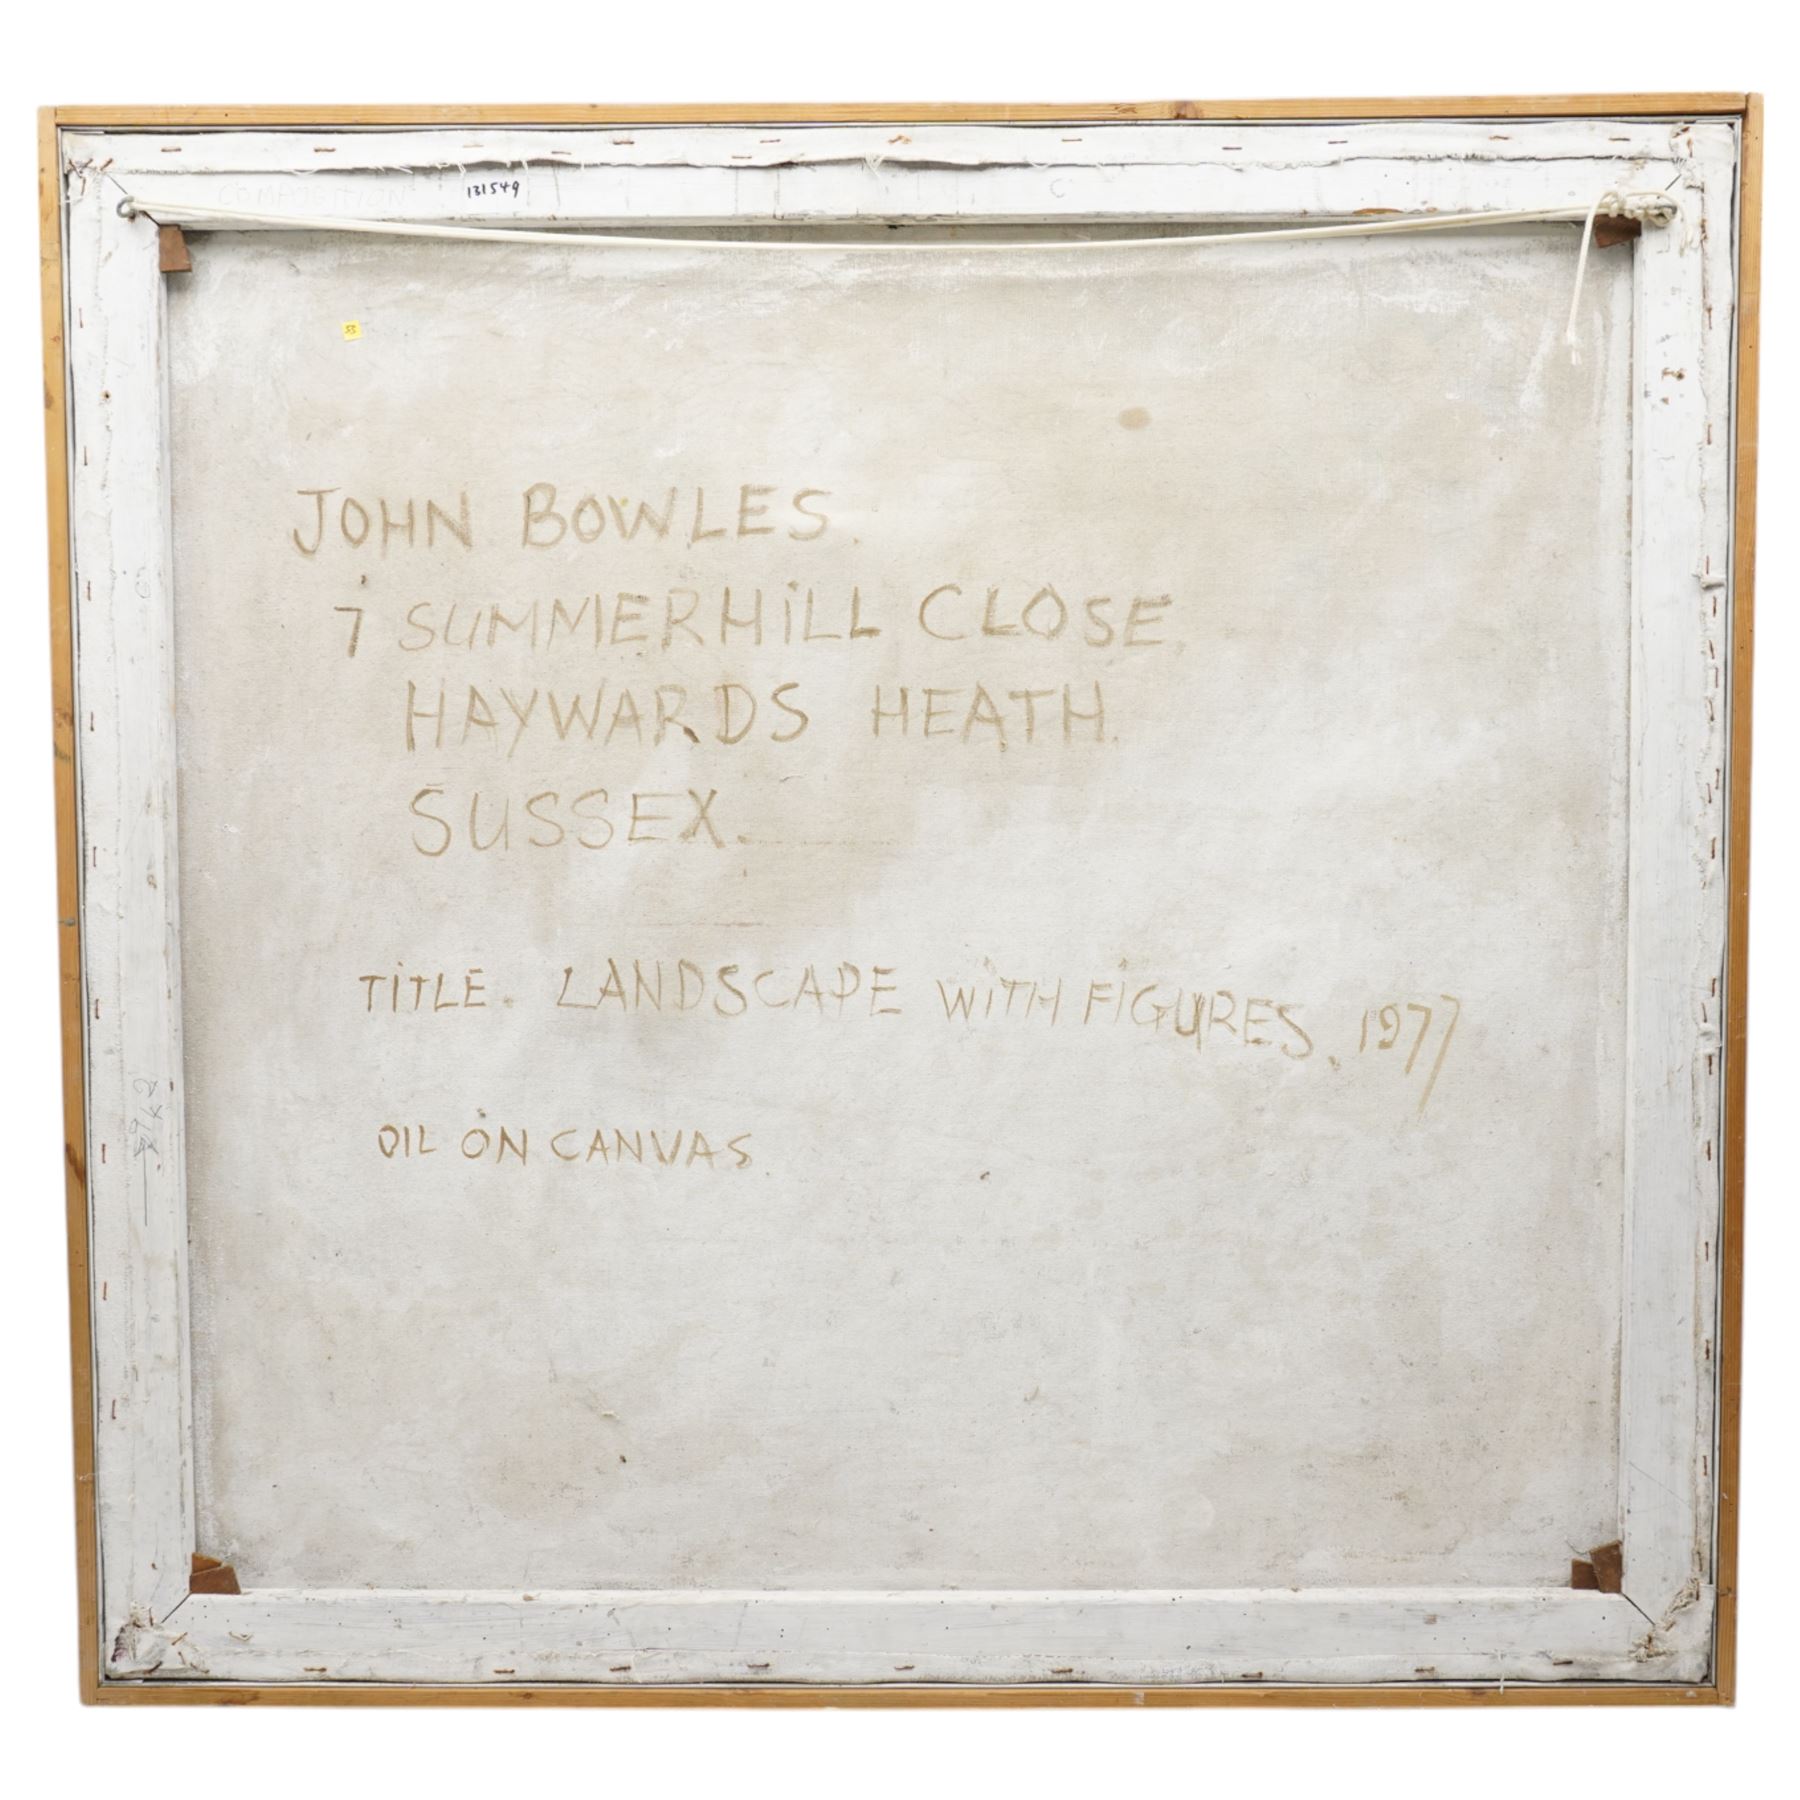 COMPOSITION 131549 C
53
JOHN BOWLES.
7 SUMMERHILL CLOSE
HAYWARDS HEATH.
SUSSEX.
TITLE. LANDSCAPE WITH FIGURES. 1977
OIL ON CANVAS